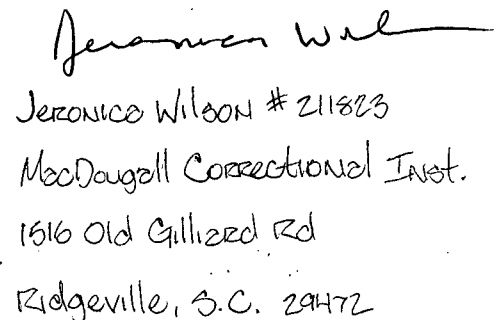 Jeronica Wilson
Jeronica Wilson # 211823
MacDougall Correctional Inst.
1516 Old Gilliard Rd
Ridgeville, S.C. 29472